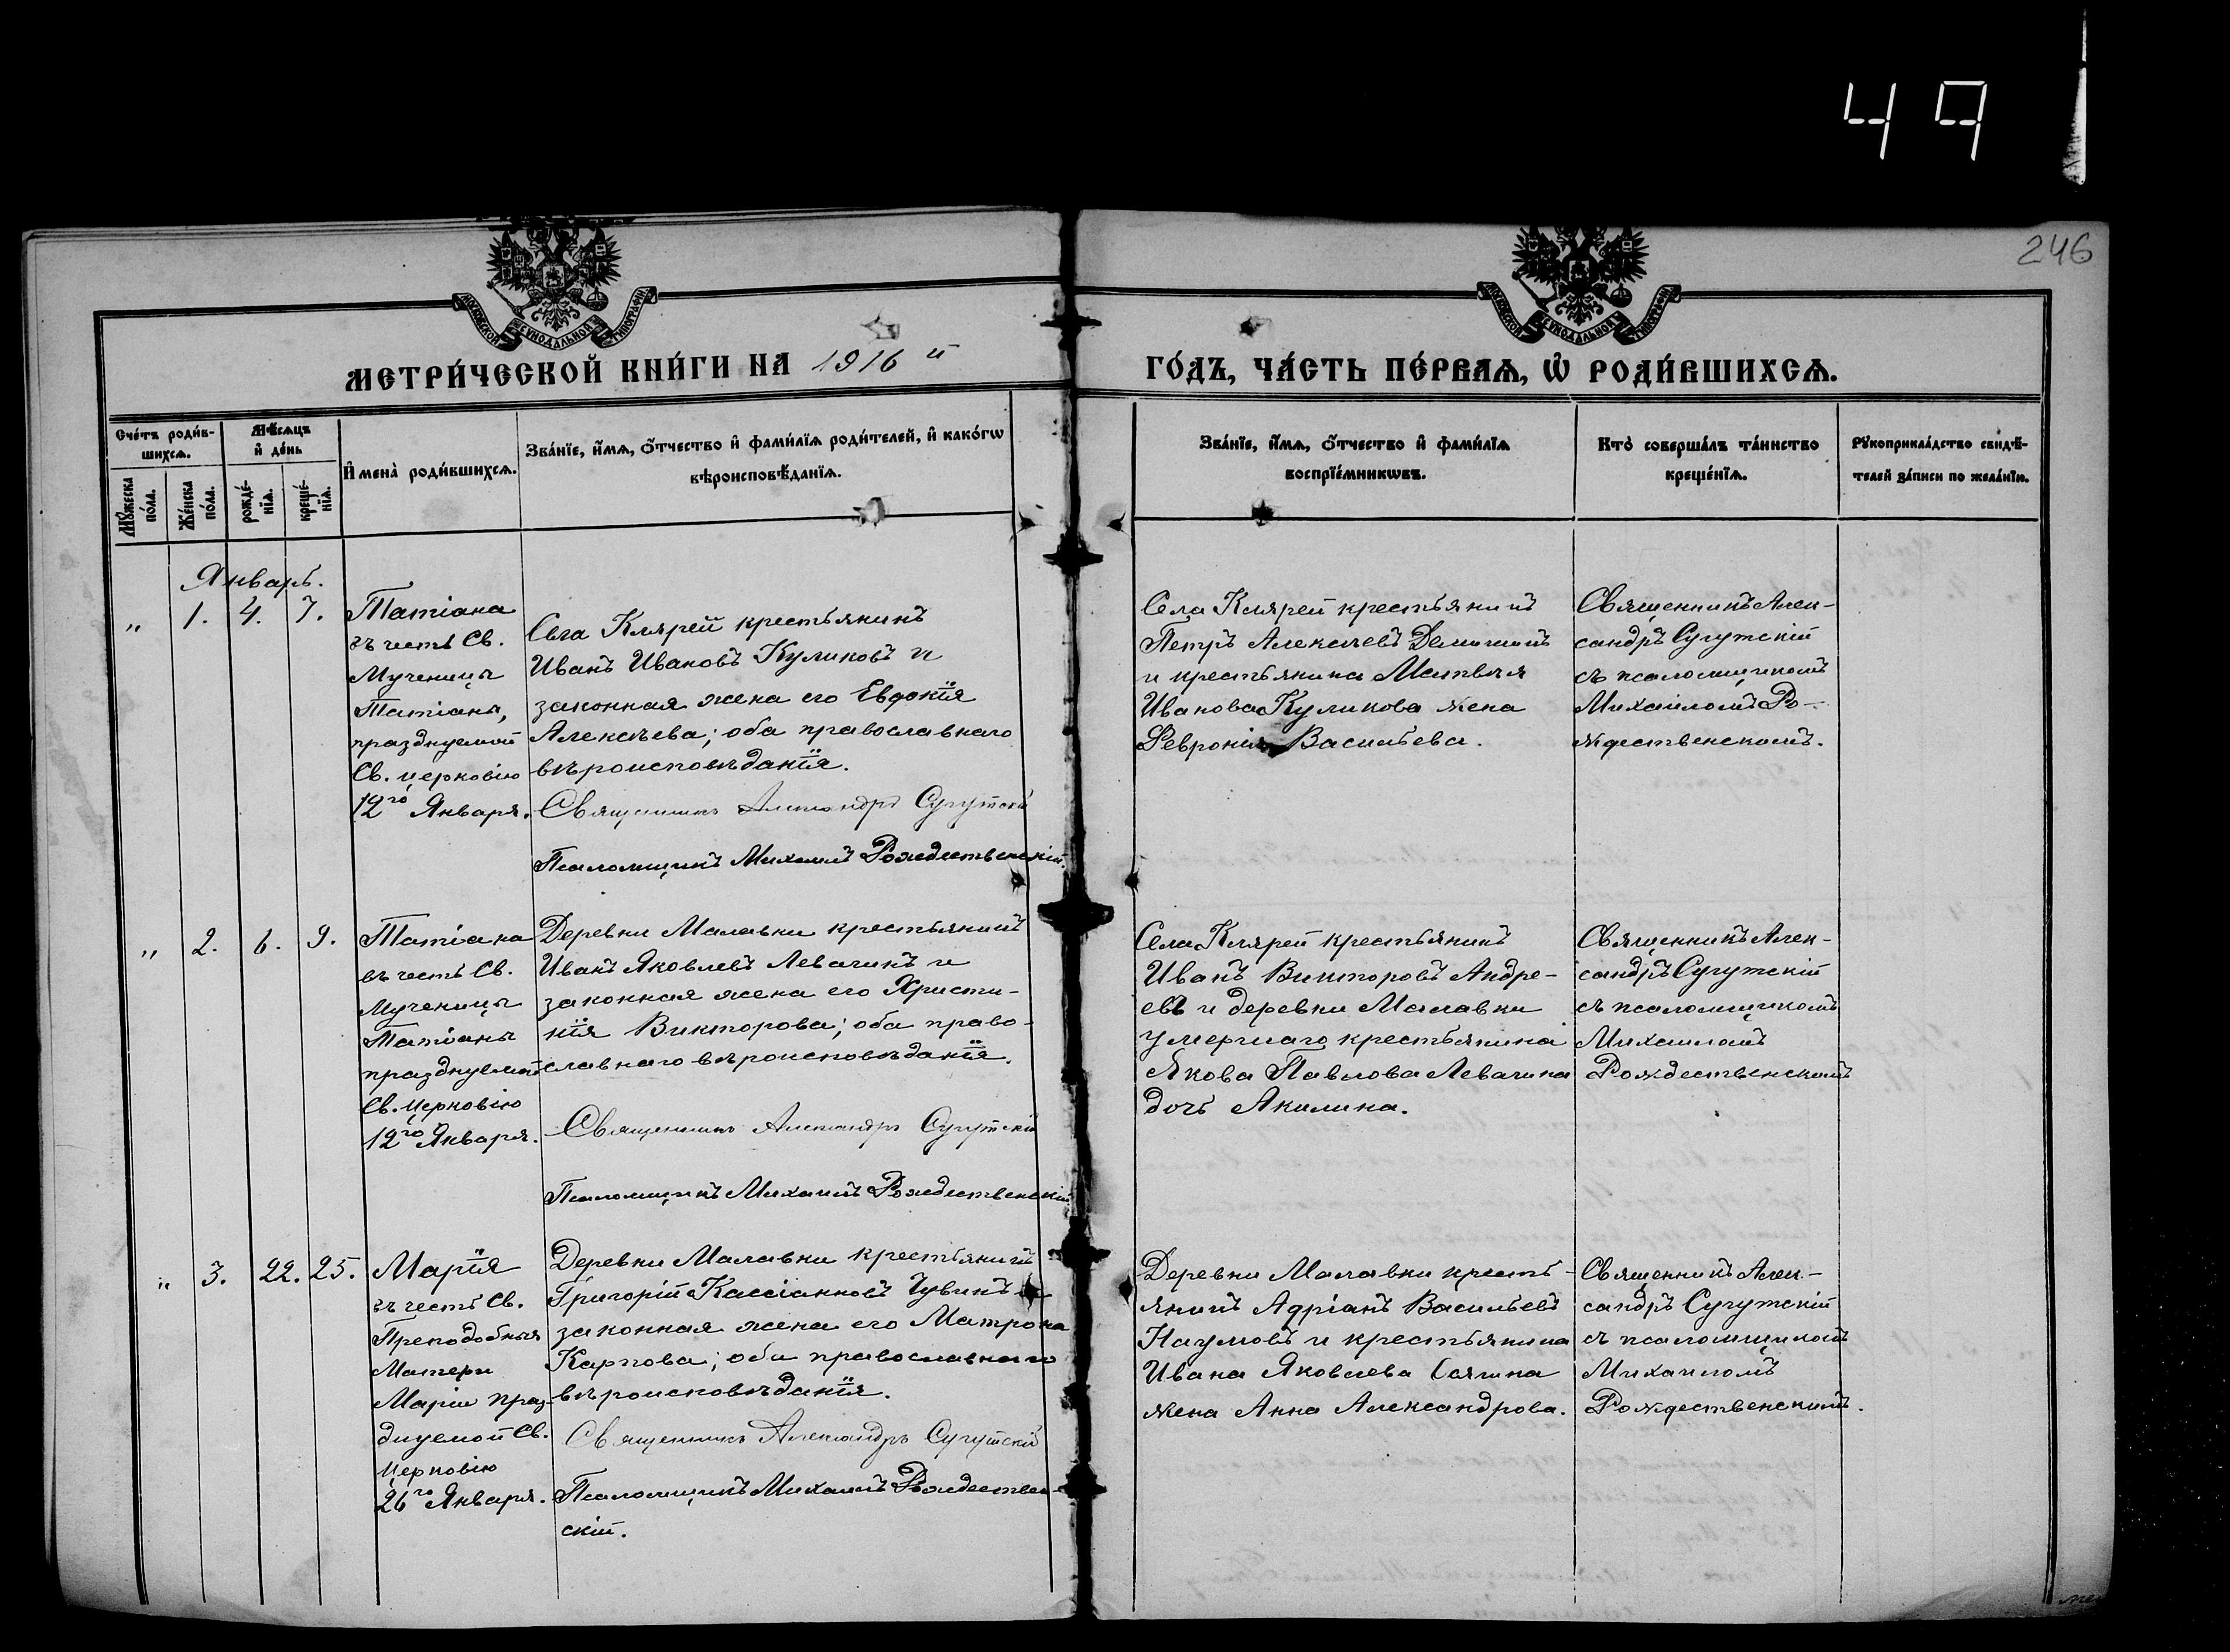 49
246
МОСКОВСКОЙ СУНОДАЛЬНОЙ ТИПОГРАФІИ
МОСКОВСКОЙ СУНОДАЛЬНОЙ ТИПОГРАФІИ
МЕТРИ́ЧЕСКОЙ КНИ́ГИ НА 1916 й
ГО́ДЪ, ЧА́СТЬ ПЕ́РВАѦ, Ѡ҆ РОДИ́ВШИХСѦ.
Сче́тъ роди́в-
шихсѧ.
Мѣ́сѧцъ
и҆ де́нь
Мꙋ́жеска
по́ла.
Же́нска
по́ла.
рожде́-
нїѧ.
креще́-
нїѧ.
И҆мена̀ роди́вшихсѧ.
Зва́нїе, и҆́мѧ, ѻ҆́тчество и҆ фами́лїѧ роди́телей, и҆ како́гѡ
вѣроисповѣ́данїѧ.
Зва́нїе, и҆́мѧ, ѻ҆́тчество и҆ фами́лїѧ
воспрїе́мникѡвъ.
Кто̀ соверша́лъ та́инство
креще́нїѧ.
Рꙋкоприкла́дство свидѣ́-
телей за́писи по жела́нїю.
Январь.
„ 1. 4. 7.
Татіана
въ честь Св.
Мученицы
Татіаны,
празднуемой
Св. церковію
12го Января.
Села Клярей крестьянинъ
Иванъ Ивановъ Куликовъ и
законная жена его Евдокія
Алексѣева; оба православнаго
вѣроисповѣданія.
Священникъ Александръ Сугутскій
Псаломщикъ Михаилъ Рождественскій.
Села Клярей крестьянинъ
Петръ Алексѣевъ
и крестьянина Матвѣя
Иванова Куликова жена
Февронія Васильева.
Священникъ Алек-
сандръ Сугутскій
съ псаломщикомъ
Михаиломъ Ро-
ждественскимъ.
„ 2. 6. 9.
Татіана
въ честь Св.
Мученицы
Татіаны
празднуемой
Св. церковію
12го Января.
Деревни Малавки крестьянинъ
Иванъ Яковлевъ Левачинъ и
законная жена его Христи-
нія Викторова; оба право-
славнаго вѣроисповѣданія.
Священникъ Александръ Сугутскій
Псаломщикъ Михаилъ Рождественскій
Села Клярей крестьянинъ
Иванъ Викторовъ Андре-
евъ и деревни Малавки
умершаго крестьянина
Якова Павлова Левачина
дочь Акилина.
Священникъ Алек-
сандръ Сугутскій
съ псаломщикомъ
Михаиломъ
Рождественскимъ
„ 3. 22. 25.
Марія
въ честь Св.
Преподобныя
Матери
Маріи праз-
днуемой Св.
церковію
26го Января.
Деревни Малавки крестьянинъ
Григорій Кассіановъ Чувинъ и
законная жена его Матрона
Карпова; оба православнаго
вѣроисповѣданія.
Священникъ Александръ Сугутскій
Псаломщикъ Михаилъ Рождествен-
скій.
Деревни Малавки кресть-
янинъ Адріанъ Васильевъ
Наумовъ и крестьянина
Ивана Яковлева
жена Анна Александрова.
Священникъ Алек-
сандръ Сугутскій
съ псаломщикомъ
Михаиломъ
Рождественскимъ.